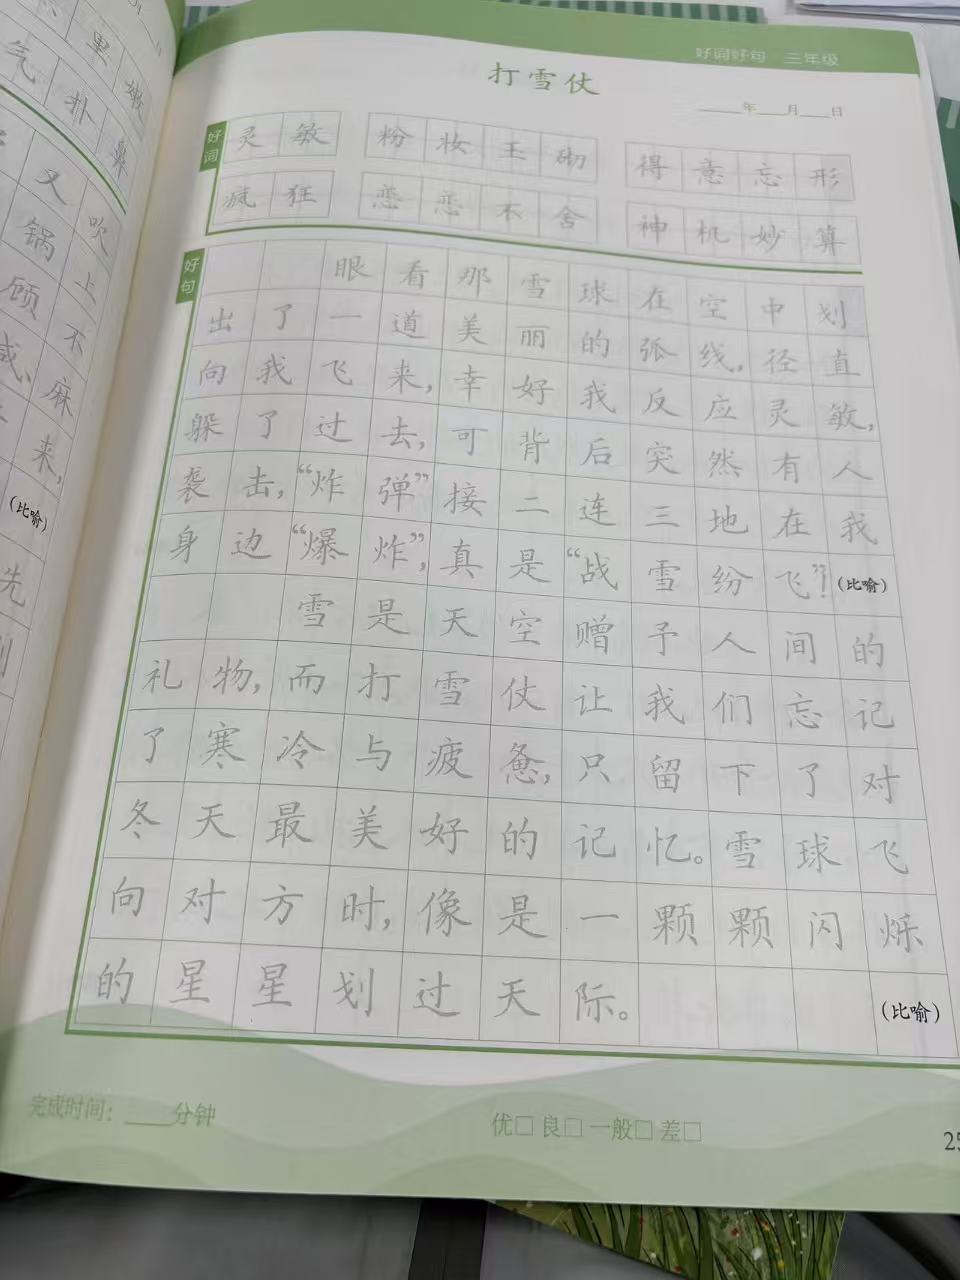 好词好句 三年级
打雪仗
年 月 日
好词
灵敏 粉妆玉砌 得意忘形
疯狂 恋恋不舍 神机妙算
好句
眼看那雪球在空中划
出了一道美丽的弧线,径直
向我飞来,幸好我反应灵敏,
躲了过去,可背后突然有人
袭击,“炸弹”接二连三地在我
身边“爆炸”,真是“战雪纷飞”!(比喻)
雪是天空赠予人间的
礼物,而打雪仗让我们忘记
了寒冷与疲惫,只留下了对
冬天最美好的记忆。雪球飞
向对方时,像是一颗颗闪烁
的星星划过天际。 (比喻)
完成时间: 分钟 优□ 良□ 一般□ 差□
里嫩
气扑鼻
又吹
锅上
顾不
麻
来,
(比喻)
先